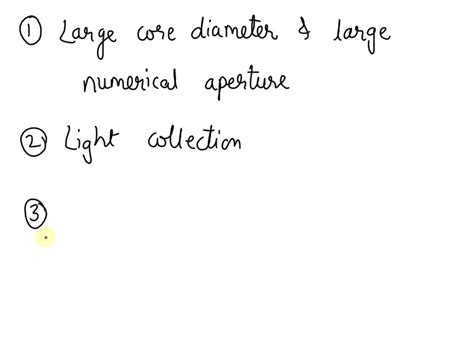 ① Large core diameter & large
numerical aperture
② Light collection
③